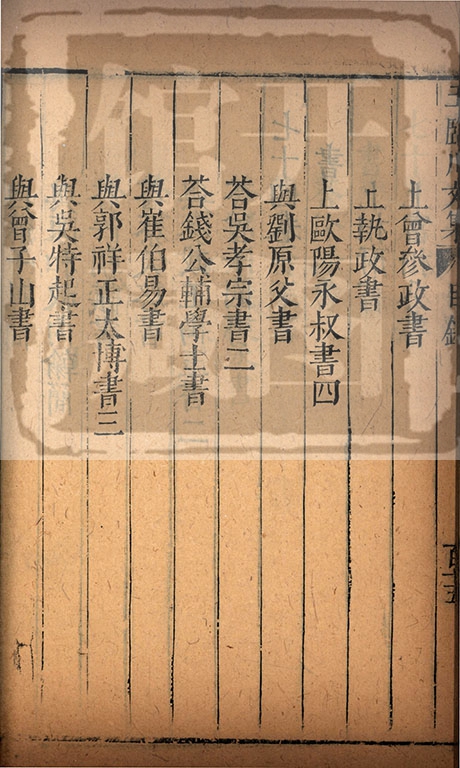 王臨川文集 目錄
上曾參政書
上執政書
上歐陽永叔書四
與劉原父書
荅吳孝宗書二
荅錢公輔學士書
與崔伯易書
與郭祥正太博書三
與吳特起書
與曾子山書